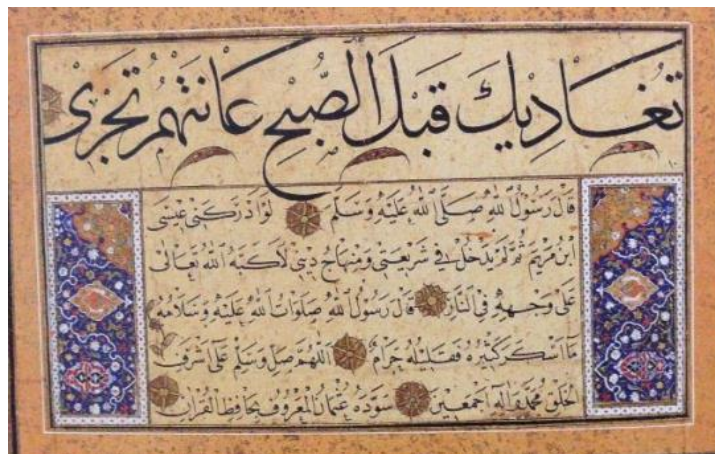 تُغَادِيكَ قَبْلَ الصُّبْحِ عَانَتُهُمْ تَجْرِى
قَالَ رَسُولُ اللهِ صَلَّى اللهُ عَلَيْهِ وَسَلَّمَ لَوْ اَدْرَكَنِى عِيسَى
ابْنُ مَرْيَمَ ثُمَّ لَمْ يَدْخُلْ فِى شَرِيعَتِى وَمِنْهَاجِ دِينِى لَاَكَبَّهُ اللهُ تَعَالَى
عَلَى وَجْهِهِ فِى النَّارِ قَالَ رَسُولُ اللهِ صَلَوَاتُ اللهِ عَلَيْهِ وَسَلَامُهُ
مَا اَسْكَرَ كَثِيرُهُ فَقَلِيلُهُ حَرَامٌ اَللّٰهُمَّ صَلِّ وَسَلِّمْ عَلَى اَشْرَفِ
الْخَلْقِ مُحَمَّدٍ وَاٰلِهِ اَجْمَعِينَ سَوَّدَهُ عُثْمَانُ الْمَعْرُوفُ بِحَافِظِ الْقُرْاٰنِ